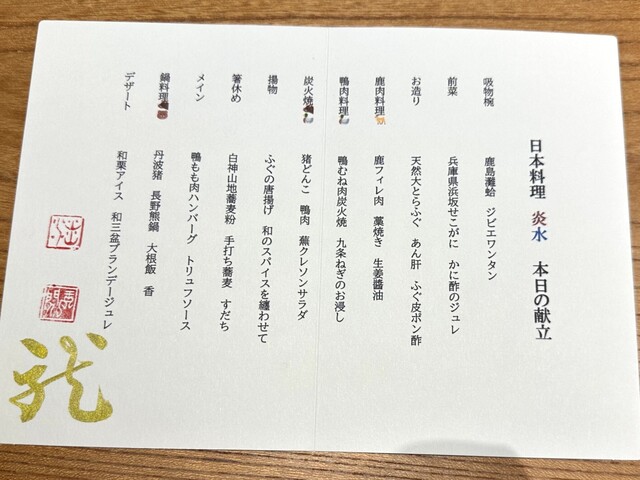 日本料理 炎水 本日の献立
吸物椀 鹿島灘蛤 ジビエワンタン
前菜 兵庫県浜坂せこがに かに酢のジュレ
お造り 天然大とらふぐ あん肝 ふぐ皮ポン酢
鹿肉料理 鹿フィレ肉 藁焼き 生姜醤油
鴨肉料理 鴨むね肉炭火焼 九条ねぎのお浸し
炭火焼 猪どんこ 鴨肉 蕪クレソンサラダ
揚物 ふぐの唐揚げ 和のスパイスを纏わせて
箸休め 白神山地蕎麦粉 手打ち蕎麦 すだち
メイン 鴨もも肉ハンバーグ トリュフソース
鍋料理 丹波猪 長野熊鍋 大根飯 香
デザート 和栗アイス 和三盆ブランデージュレ
龍